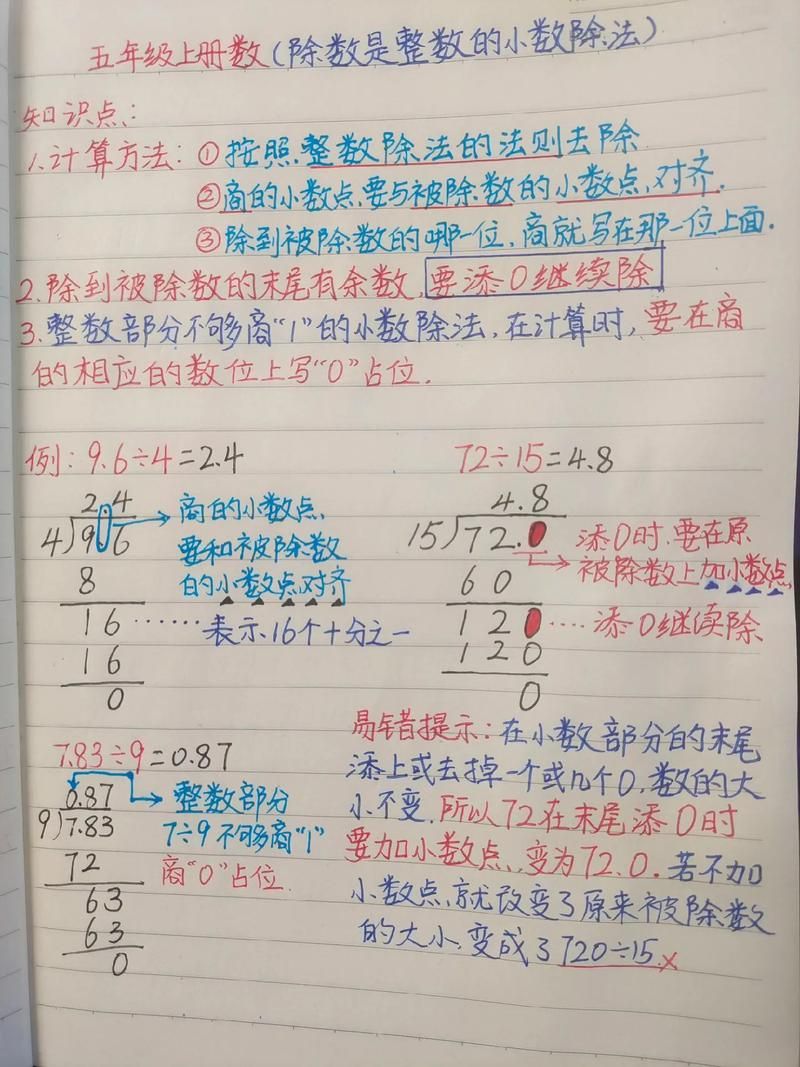 五年级上册数(除数是整数的小数除法)
知识点:
1.计算方法:①按照整数除法的法则去除
②商的小数点要与被除数的小数点对齐.
③除到被除数的哪一位,商就写在那一位上面.
2.除到被除数的末尾有余数,要添0继续除
3.整数部分不够多商"1"的小数除法,在计算时,要在商
的相应的数位上写"0"占位.
例:9.6÷4=2.4
2.4
4)9.6
8
16……表示16个十分之一
16
0
商的小数点
要和被除数
的小数点对齐
72÷15=4.8
4.8
15)72.0
60
120….添0继续除
120
0
添0时,要在原
被除数上加小数点
7.83÷9=0.87
0.87
9)7.83
72
63
63
0
整数部分
7÷9不够多商"1"
商"0"占位.
易错提示:在小数部分的末尾
添上或去掉一个或几个0,数的大
小不变.所以72在末尾添0时
要加小数点,变为72.0.若不加
小数点,就改变了原来被除数
的大小.变成了720÷15.×